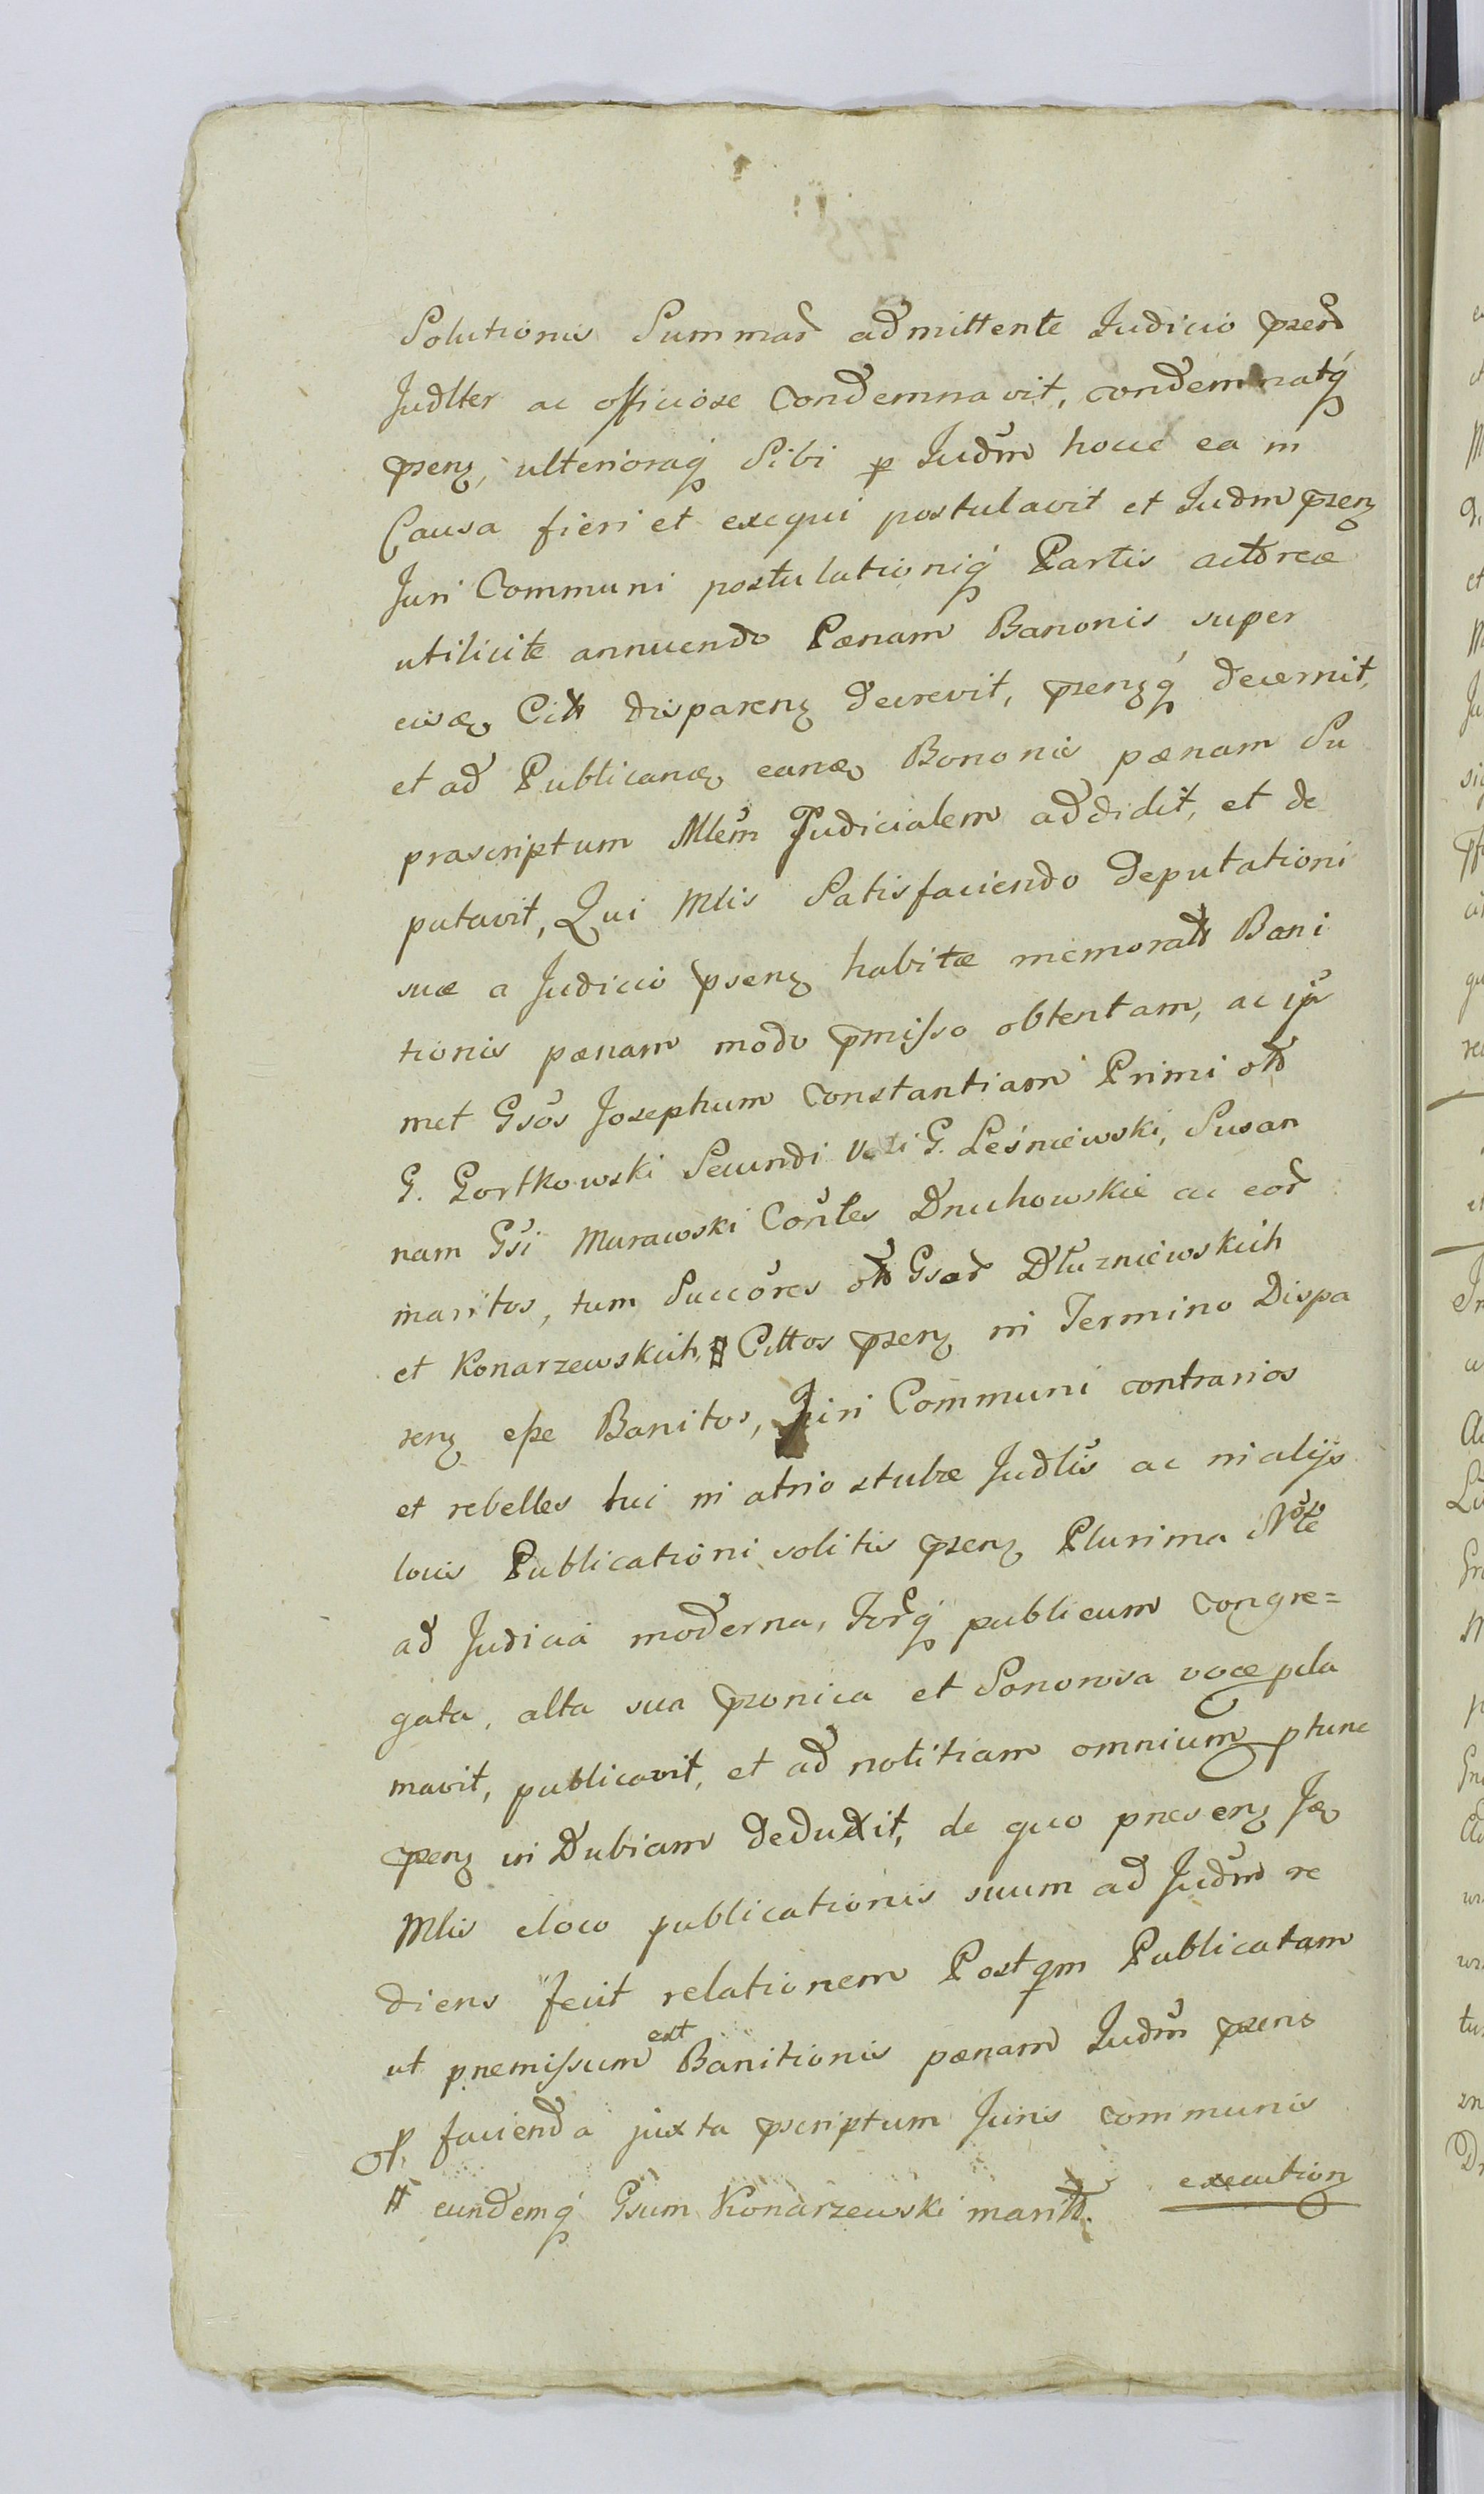 Solutionis Summar admittente Judicio psen
Judlter ac officiose Condemnavit, condemnatq
psenz, ulterioraq Sibi p Judm hocce ea in
Causa fieri et exequi postulavit et Judm psenz
Juri Communi postulationiq Partis actoreæ
utilicite annuendo Pænam Banonis super
eisdem Citt disparenz decrevit, psenzq decernit,
et ad Publicandæ eandæ Bononis pænam Su
prascriptum Mlem Judicialem addidit, et de
putavit, Qui Mlis Satisfaciendo deputationi
suæ a Judicio psenz habitæ memorat Bani
tionis pænam modo pmisso obtentam, ac ip
met Gsos Josephum Constantiam Primi ott
G. Gortkowski Secundi Voti G. Leśniewski, Susan
nam Gsi Murawski Contes Druhowskie ac eor
maritos, tum Succores ott Gsor Dłuzniewskich
et Konarzewskich, # Cittos psenz in Termino Dispa
renz esse Banitos, Juri Communi contrarios
et rebelles hui in atrio stubæ Judlis ac in alijs
locis Publicationi solitis psenz Plurima Note
ad Judicia moderna, Forq publicum congre=
gata, alta sua psonica et Sonorosa voce pcla
mavit, publicavit, et ad notitiam omnium ptunc
psenz in Dubiam deduxit, de quo presenz Jdæ
Mlis eloco publicationis suum ad Judm re
diens fecit relationem Postqm Publicatam
ut premissum est Banitionis pænam Judm psens
p facienda juxta pscriptum Juris communis
execution
# eundemq Gsum Konarzewski maritt.